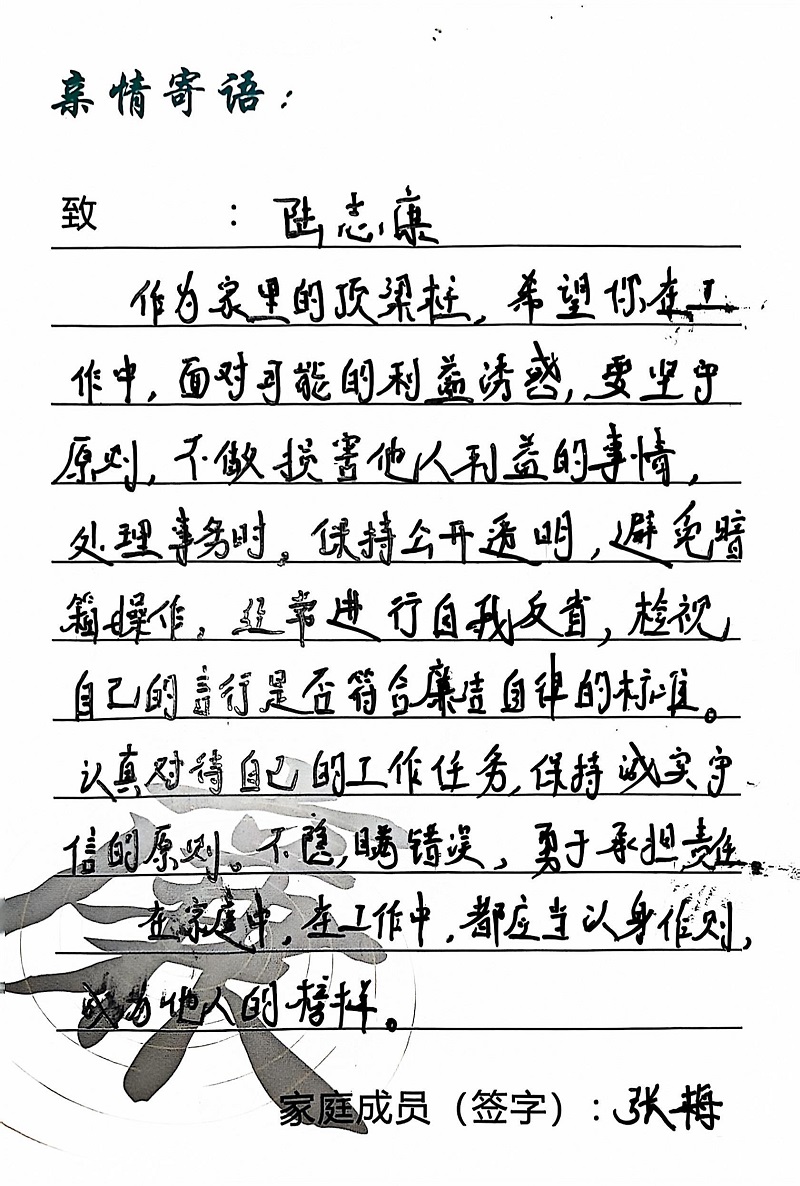 亲情寄语：
致　　　：陆志康
作为家里的顶梁柱，希望你在工
作中，面对可能的利益诱惑，要坚守
原则，不做损害他人利益的事情，
处理事务时。保持公开透明，避免暗
箱操作，经常进行自我反省，检视
自己的言行是否符合廉洁自律的标准。
认真对待自己的工作任务，保持诚实守
信的原则。不隐瞒错误，勇于承担责任
在家庭中，在工作中，都应当以身作则，
成为他人的榜样。
家庭成员（签字）：张梅